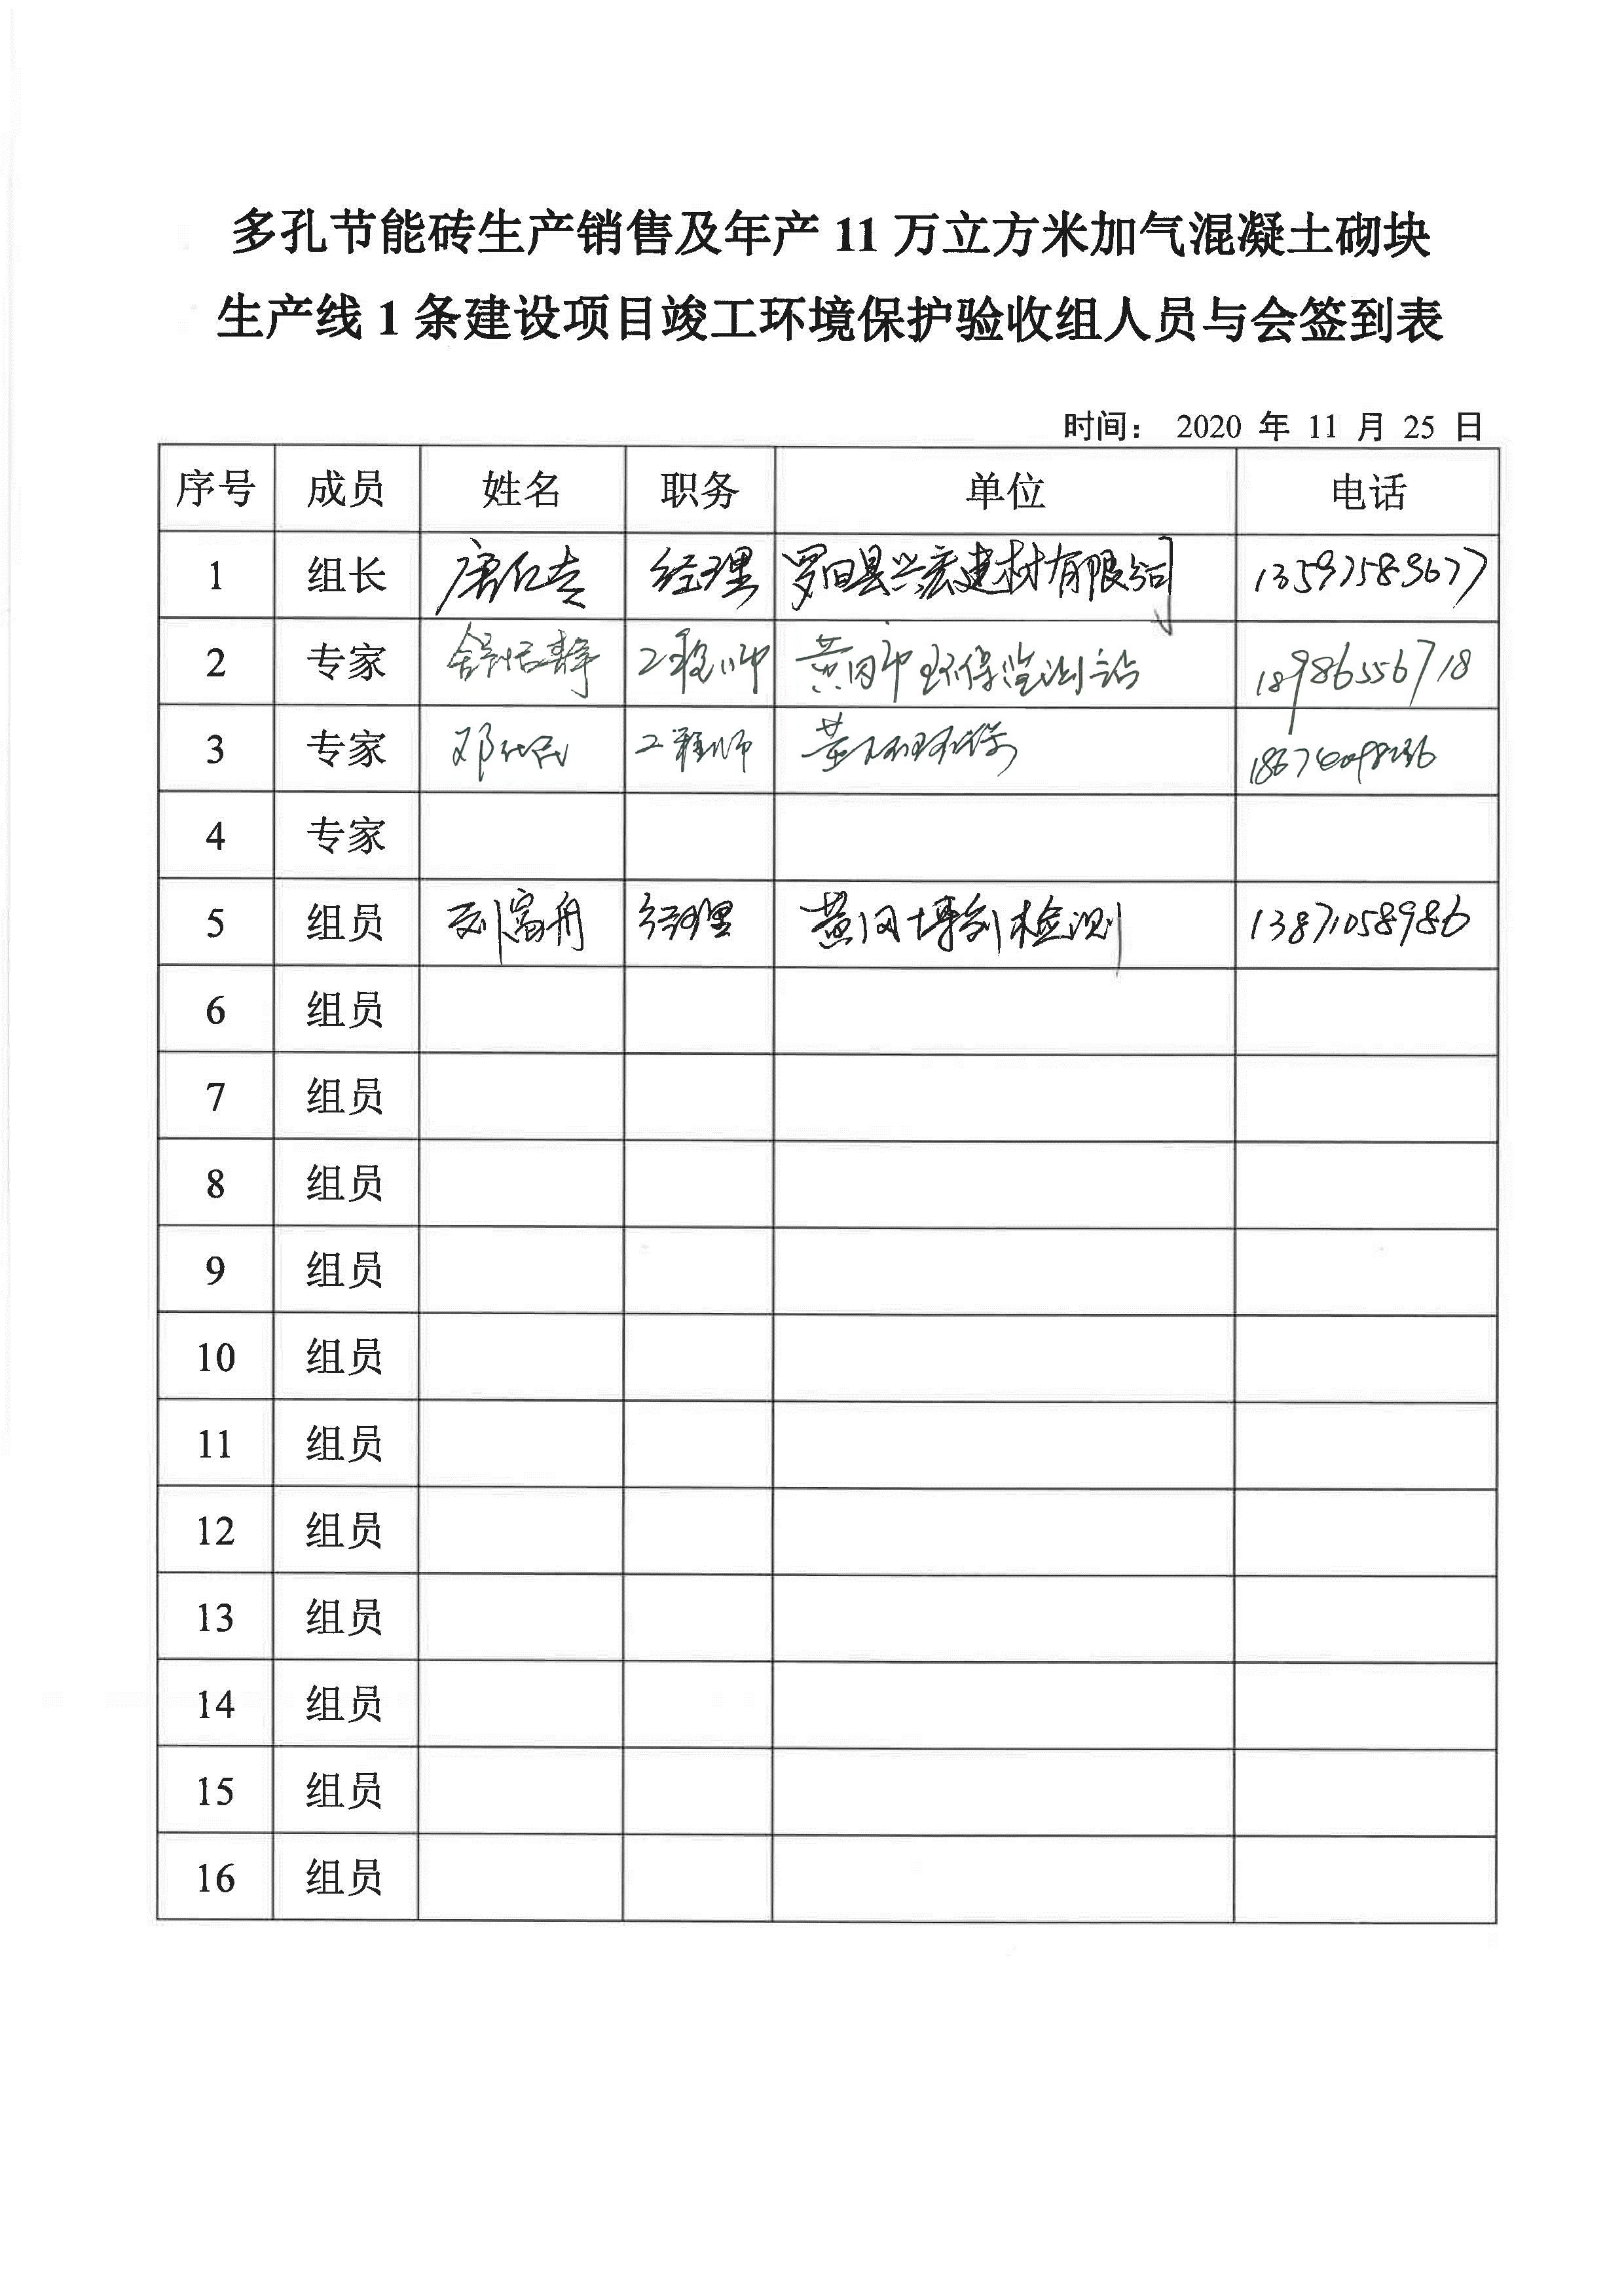 多孔节能砖生产销售及年产 11 万立方米加气混凝土砌块
生产线 1 条建设项目竣工环境保护验收组人员与会签到表
时间： 2020 年 11 月 25 日
序号 成员 姓名 职务 单位 电话
1 组长 经理 罗田县兴宏建材有限公司 13597583677
2 专家 工程师 黄冈市环保监测站 18986556718
3 专家 工程师
4 专家
5 组员 刘富舟 经理 黄冈博创检测 13871058986
6 组员
7 组员
8 组员
9 组员
10 组员
11 组员
12 组员
13 组员
14 组员
15 组员
16 组员